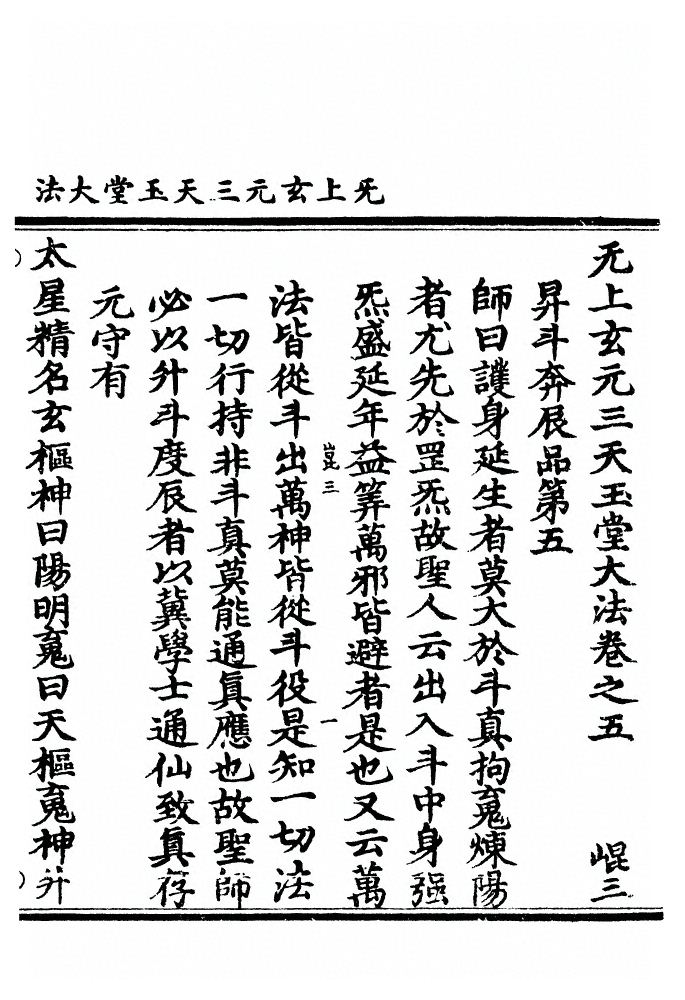 无上玄元三天玉堂大法
无上玄元三天玉堂大法卷之五　崐三
昇斗奔辰品第五
師曰護身延生者莫大於斗真拘䰟煉陽
者尤先於罡炁故聖人云出入斗中身强
炁盛延年益筭萬邪皆避者是也又云萬
崐三　一
法皆從斗出萬神皆從斗役是知一切法
一切行持非斗真莫能通真應也故聖師
必以升斗度辰者以冀學士通仙致真存
元守有
太星精名玄樞神曰陽明䰟曰天樞䰟神升